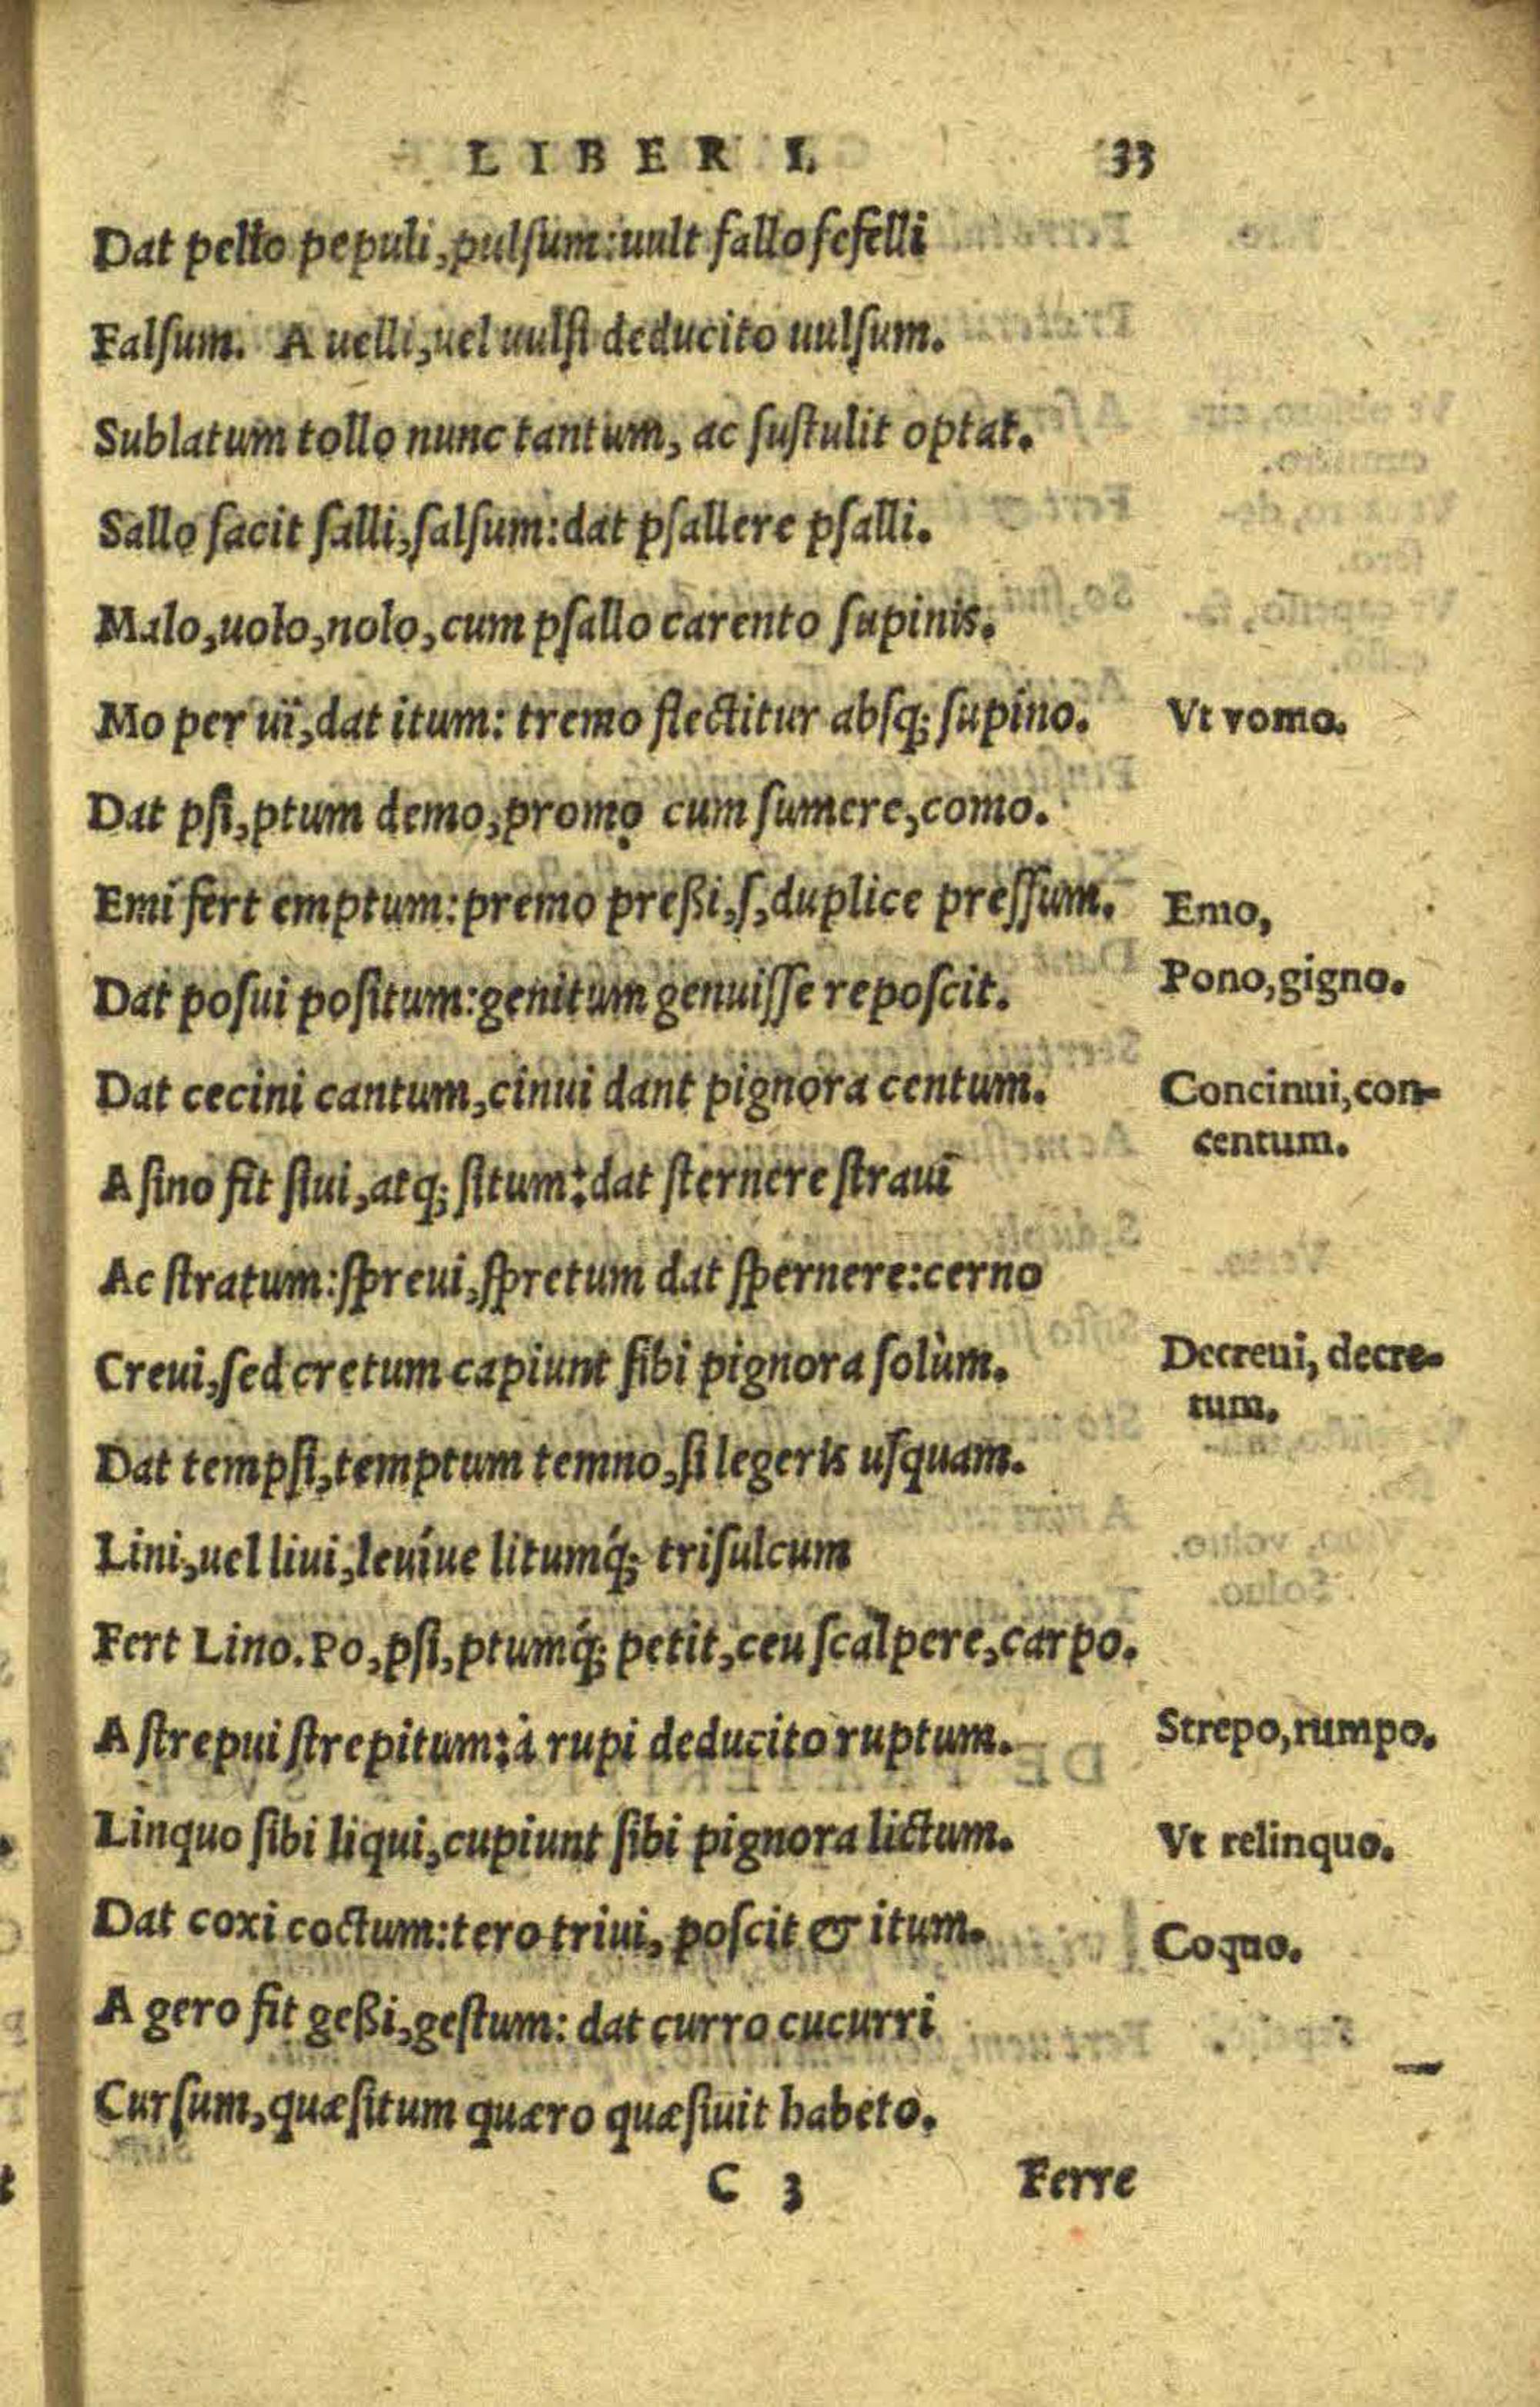 LIBER I. 33
Dat pello pepuli, pulsum: uult fallo fefelli
Falsum. A uelli, uel uulsi deducito uulsum.
Sublatum tollo nunc tantum, ac sustulit optat.
Sallo facit salli, salsum: dat psallere psalli.
Malo, uolo, nolo, cum psallo carento supinis.
Mo per uï, dat itum: tremo flectitur absq; supino. Vt vomo.
Dat psi, ptum demo, promo cum sumere, como.
Emi fert emptum: premo preßi, s, duplice pressum. Emo,
Dat posui positum: genitum genuisse reposcit. Pono, gigno.
Dat cecini cantum, cinui dant pignora centum. Concinui, con-
centum.
A sino fit siui, atq; situm: dat sternere straui
Ac stratum: spreui, spretum dat spernere: cerno
Creui, sed cretum capiunt sibi pignora solùm. Decreui, decre-
tum.
Dat tempsi, temptum temno, si legeris usquam.
Lini, uel liui, leuíue litumq́; trisulcum
Fert Lino. Po, psi, ptumq́; petit, ceu scalpere, carpo.
A strepui strepitum: à rupi deducito ruptum. Strepo, rumpo.
Linquo sibi liqui, cupiunt sibi pignora lictum. Vt relinquo.
Dat coxi coctum: tero triui, poscit & itum. Coquo.
A gero fit geßi, gestum: dat curro cucurri
Cursum, quæsitum quæro quæsiuit habeto.
C 3 Ferre